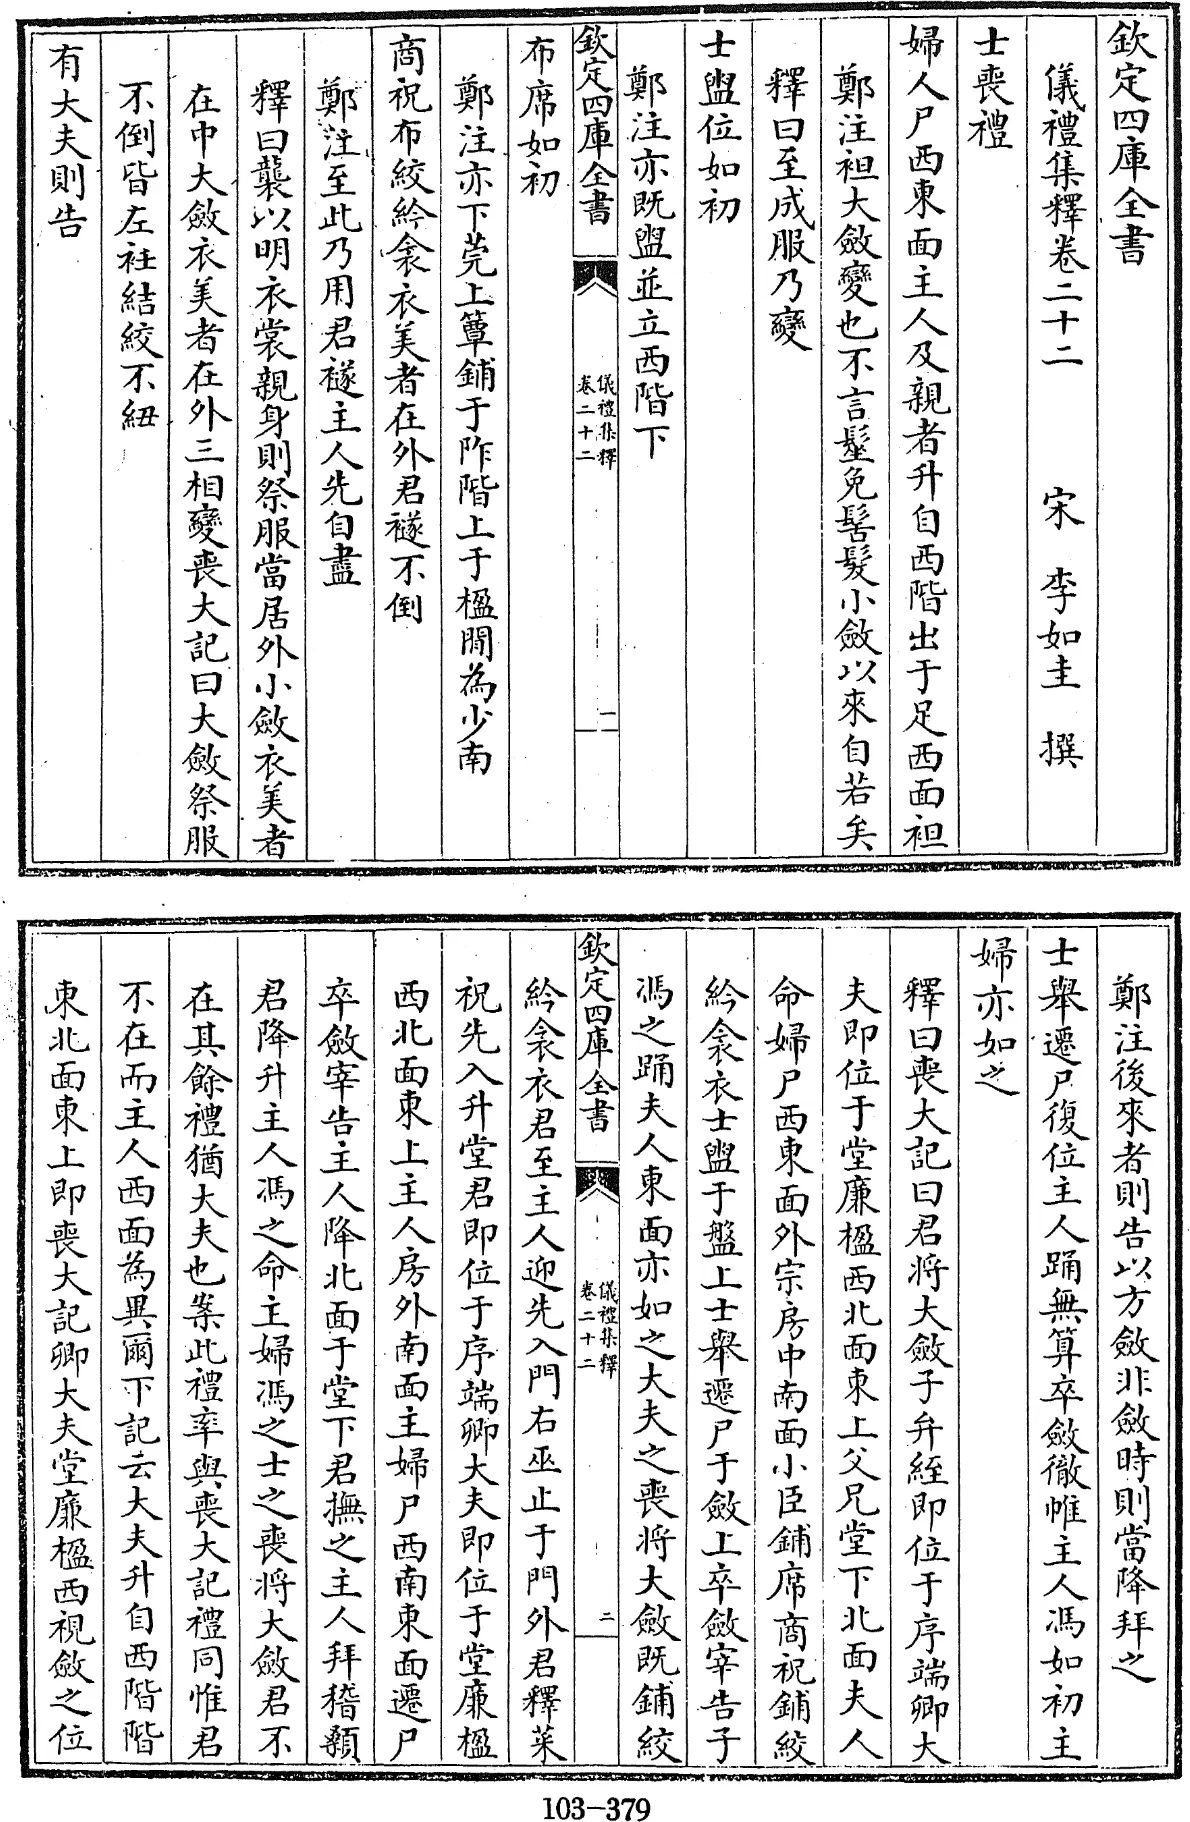 欽定四庫全書
儀禮集釋卷二十二
宋 李如圭 撰
士喪禮
婦人尸西東面主人及親者升自西階出于足西面袒
鄭注袒大斂變也不言髽免髺髮小斂以來自若矣
釋曰至成服乃變
士盥位如初
鄭注亦既盥並立西階下
欽定四庫全書
儀禮集釋
卷二十二
一
布席如初
鄭注亦下莞上簟鋪于阼階上于楹閒為少南
商祝布絞紟衾衣美者在外君襚不倒
鄭注至此乃用君襚主人先自盡
釋曰襲以明衣裳親身則祭服當居外小斂衣美者
在中大斂衣美者在外三相變喪大記曰大斂祭服
不倒皆左衽結絞不紐
有大夫則告
鄭注後來者則告以方斂非斂時則當降拜之
士舉遷尸復位主人踊無算卒斂徹帷主人馮如初主
婦亦如之
釋曰喪大記曰君將大斂子弁絰即位于序端卿大
夫即位于堂廉楹西北面東上父兄堂下北面夫人
命婦尸西東面外宗房中南面小臣鋪席商祝鋪絞
紟衾衣士盥于盤上士舉遷尸于斂上卒斂宰告子
馮之踊夫人東面亦如之大夫之喪將大斂既鋪絞
欽定四庫全書
儀禮集釋
卷二十二
二
紟衾衣君至主人迎先入門右巫止于門外君釋菜
祝先入升堂君即位于序端卿大夫即位于堂廉楹
西北面東上主人房外南面主婦尸西南東面遷尸
卒斂宰告主人降北面于堂下君撫之主人拜稽顙
君降升主人馮之命主婦馮之士之喪將大斂君不
在其餘禮猶大夫也案此禮率與喪大記禮同惟君
不在而主人西面為異爾下記云大夫升自西階階
東北面東上即喪大記卿大夫堂廉楹西視斂之位
103-379